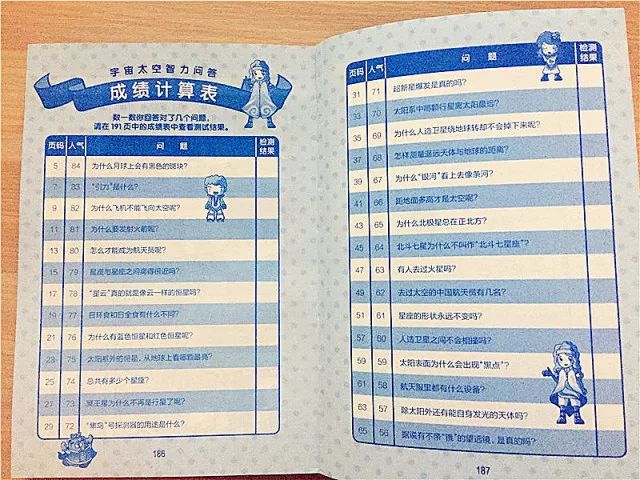 宇宙太空智力问答
成绩计算表
数一数你回答对了几个问题，
请在191页中的成绩表中查看测试结果。
页码 人气 问题 检测结果
5 84 为什么月球上会有黑色的斑块？
7 83 “引力”是什么？
9 82 为什么飞机不能飞向太空呢？
11 81 为什么要发射火箭呢？
13 80 怎么才能成为航天员呢？
15 79 星座与星座之间离得很近吗？
17 78 “星云”真的就是像云一样的恒星吗？
19 77 日环食和日全食有什么不同？
21 76 为什么有蓝色恒星和红色恒星呢？
23 75 太阳系外的恒星，从地球上看哪颗最亮？
25 74 总共有多少个星座？
27 73 冥王星为什么不再是行星了呢？
29 72 “隼鸟”号探测器的用途是什么？
186
页码 人气 问题 检测结果
31 71 超新星爆发是真的吗？
33 70 太阳系中哪颗行星离太阳最远？
35 69 为什么人造卫星绕地球转却不会掉下来呢？
37 68 怎样测量遥远天体与地球的距离？
39 67 为什么“银河”看上去像条河？
41 66 距地面多高才是太空呢？
43 65 为什么北极星总在正北方？
45 64 北斗七星为什么不叫作“北斗七星座”？
47 63 有人去过火星吗？
49 62 去过太空的中国航天员有几名？
51 61 星座的形状永远不变吗？
57 60 人造卫星之间不会相撞吗？
59 59 太阳表面为什么会出现“黑点”？
61 58 航天服里都有什么设备？
63 57 除太阳外还有能自身发光的天体吗？
65 56 据说有不带“镜”的望远镜，是真的吗？
187